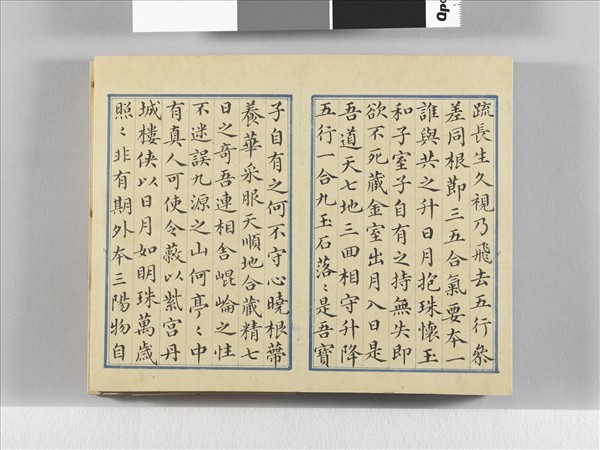 疏長生久視乃飛去五行參
差同根節三五合氣要本一
誰與共之升日月抱珠懷玉
和子室子自有之持無失即
欲不死藏金室出月入日是
吾道天七地三回相守升降
五行一合九玉石落〻是吾寶
子自有之何不守心曉根蔕
養華采服天順地合藏精七
日之奇吾連相舍崐崘之性
不迷誤九源之山何亭〻中
有真人可使令蔽以紫宮丹
城樓俠以日月如明珠萬歲
照〻非有期外本三陽物自